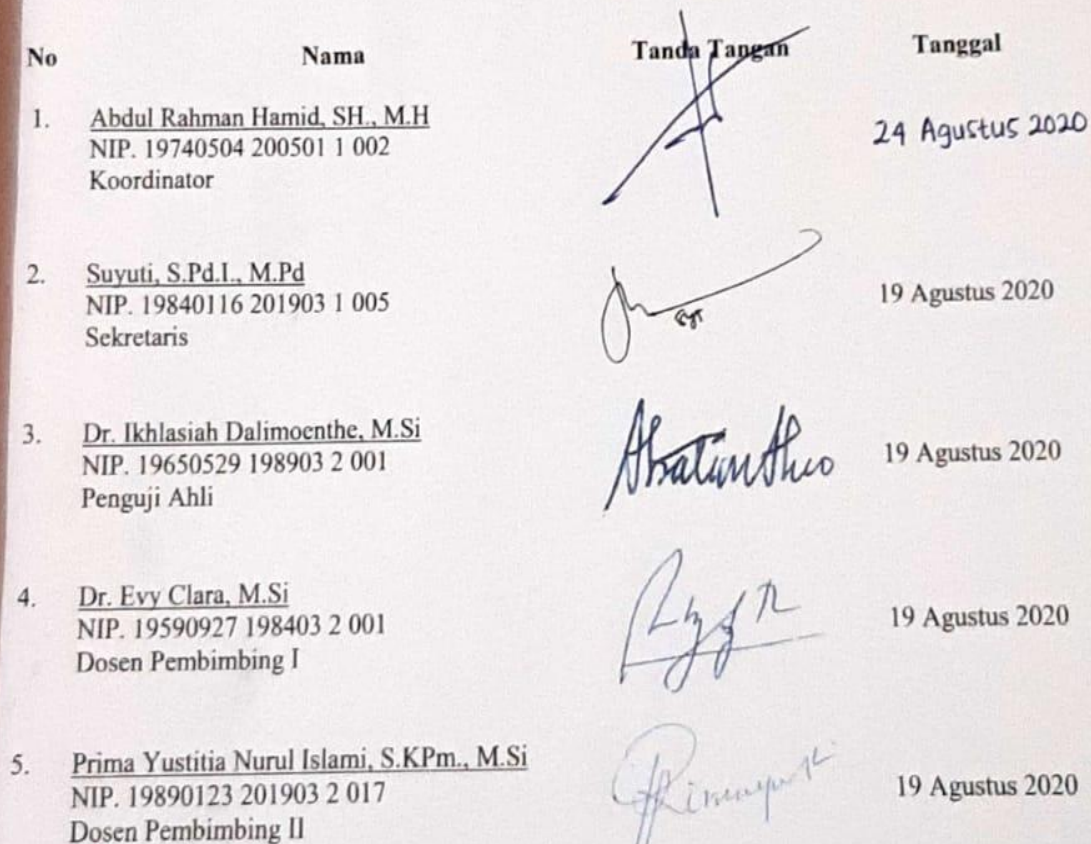 No Nama Tanda Tangan Tanggal
1. Abdul Rahman Hamid, SH., M.H
NIP. 19740504 200501 1 002
Koordinator
24 Agustus 2020
2. Suyuti, S.Pd.I., M.Pd
NIP. 19840116 201903 1 005
Sekretaris
19 Agustus 2020
3. Dr. Ikhlasiah Dalimoenthe, M.Si
NIP. 19650529 198903 2 001
Penguji Ahli
19 Agustus 2020
4. Dr. Evy Clara, M.Si
NIP. 19590927 198403 2 001
Dosen Pembimbing I
19 Agustus 2020
5. Prima Yustitia Nurul Islami, S.KPm., M.Si
NIP. 19890123 201903 2 017
Dosen Pembimbing II
19 Agustus 2020